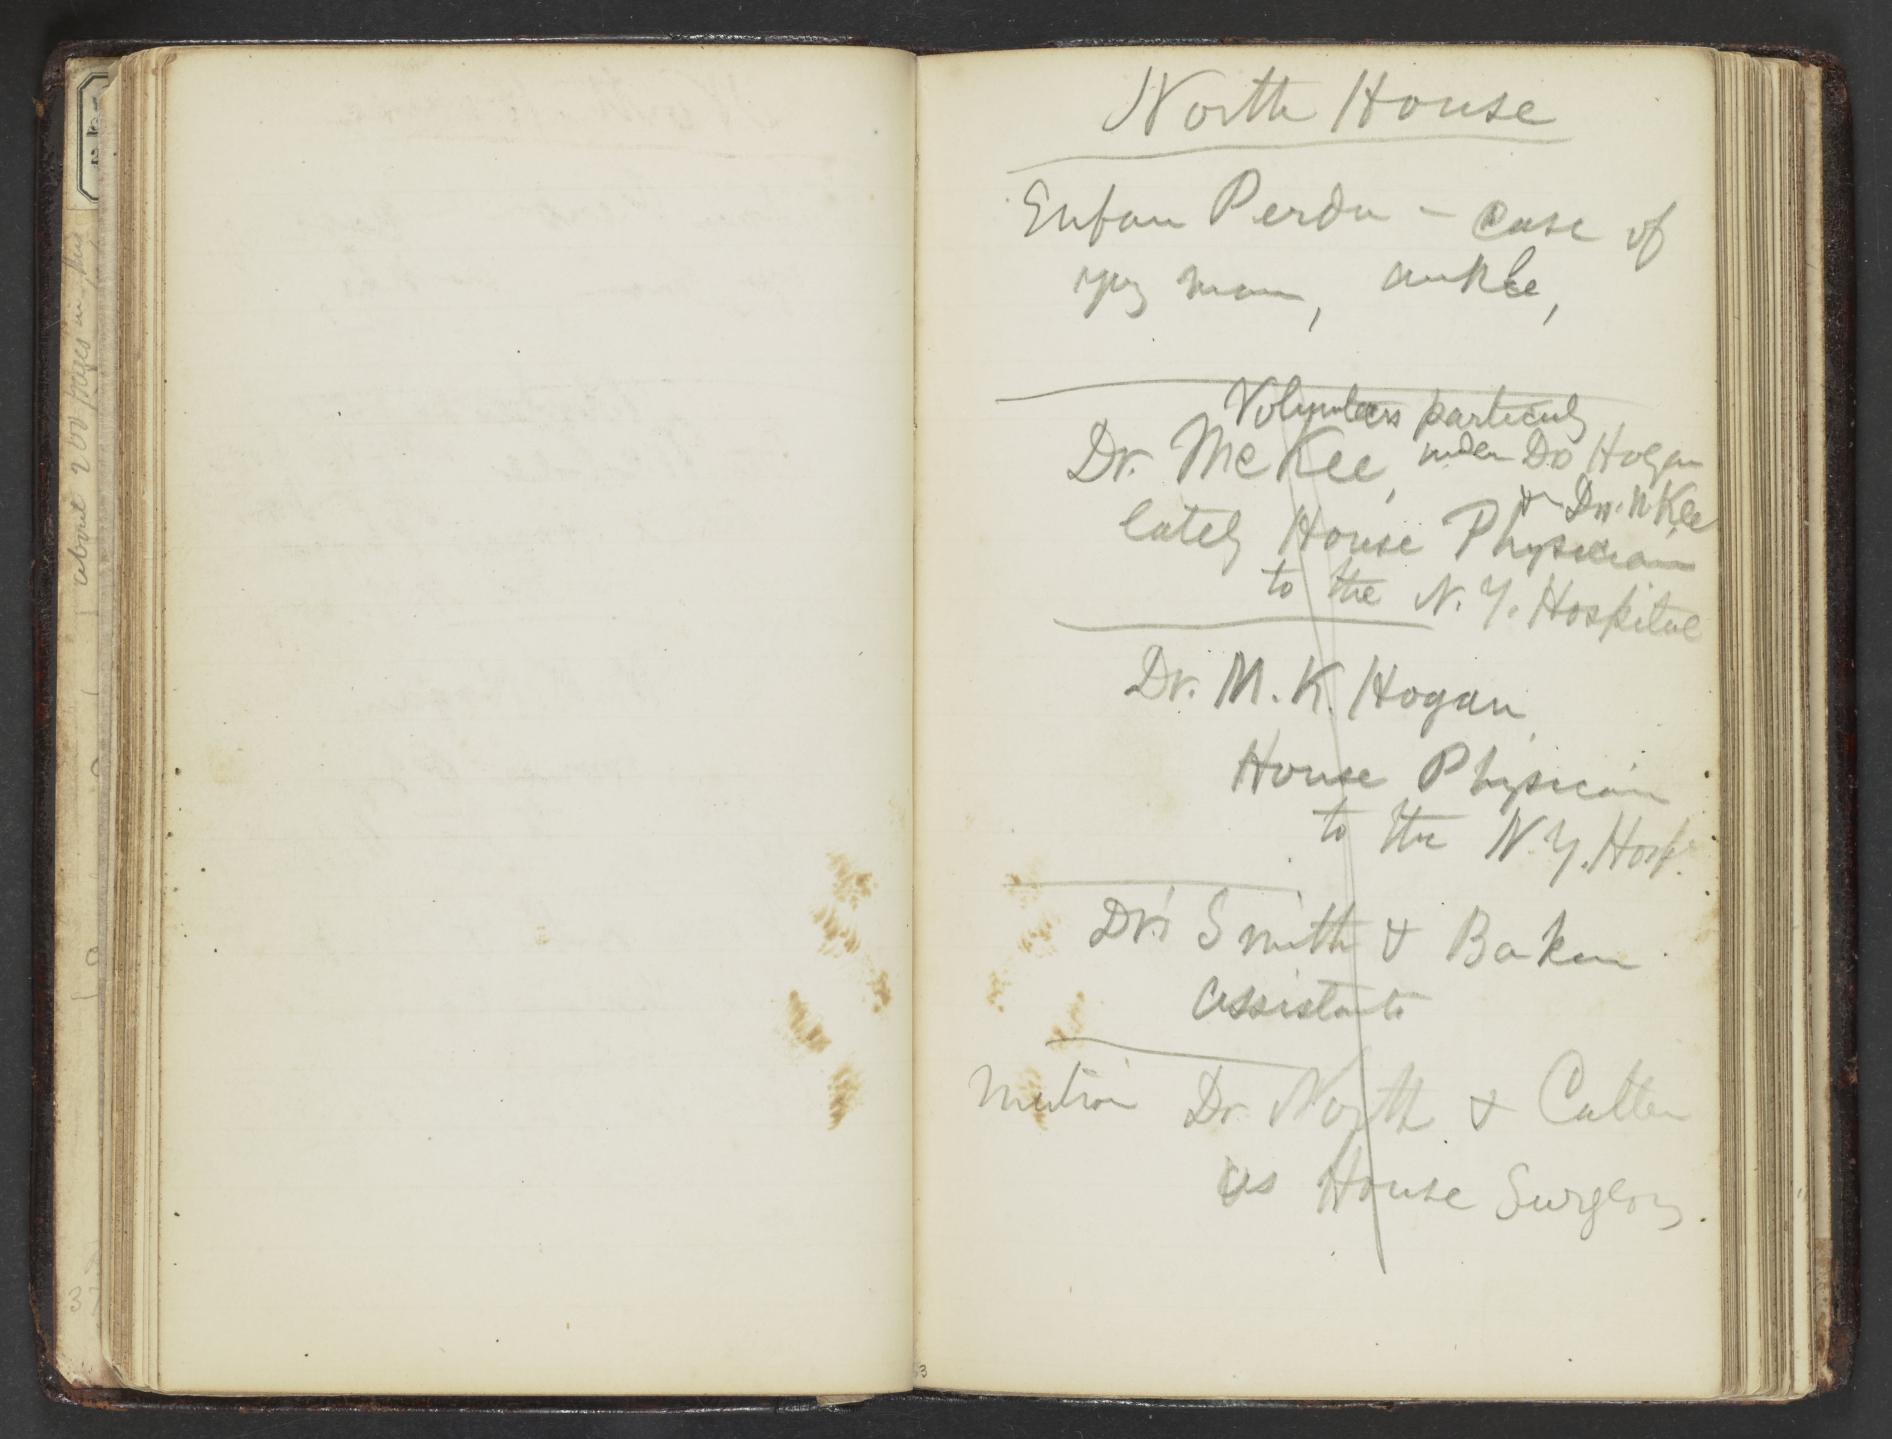 about 200 pages in this
North House
Enfan Perdu - case of
yng man, ankle,
Volunteers particuly
Dr. McKee, under Do Hogan
& Dr. McKee
lately House Physician
to the N. Y. Hospital
Dr. M. K. Hogan
House Physician
to the N. Y. Hosp.
Dr's Smith & Baken
assistants
mention Dr. North & Cutter
as House Surgeons
3